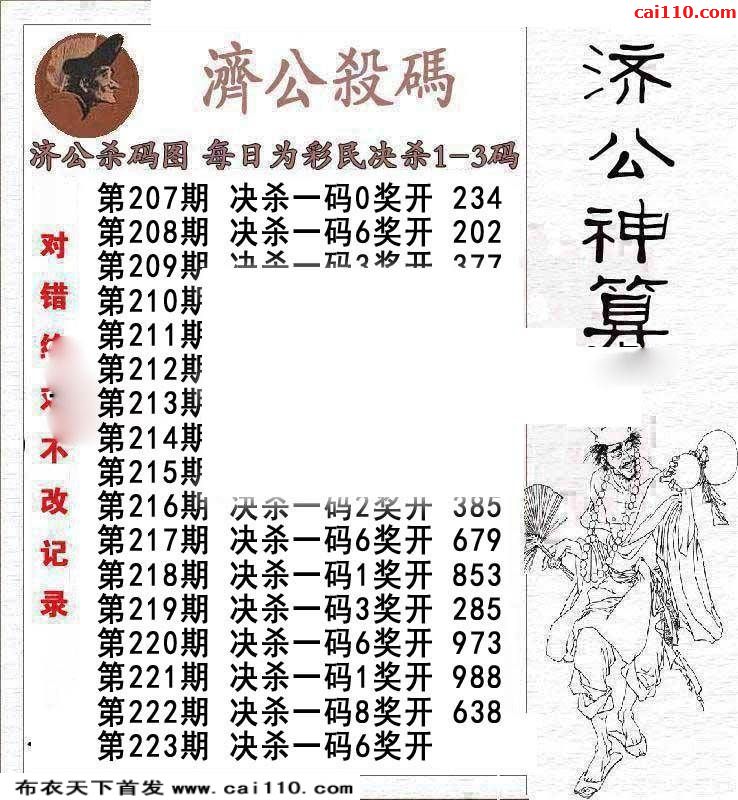 cai110.com
濟公殺碼
济公杀码图 每日为彩民决杀1-3码
第207期 决杀一码0奖开 234
第208期 决杀一码6奖开 202
第209期 决杀一码3奖开 377
第210期
第211期
第212期
第213期
第214期
第215期
第216期 决杀一码2奖开 385
第217期 决杀一码6奖开 679
第218期 决杀一码1奖开 853
第219期 决杀一码3奖开 285
第220期 决杀一码6奖开 973
第221期 决杀一码1奖开 988
第222期 决杀一码8奖开 638
第223期 决杀一码6奖开
对错
不改记录
济公神算
布衣天下首发 www.cai110.com